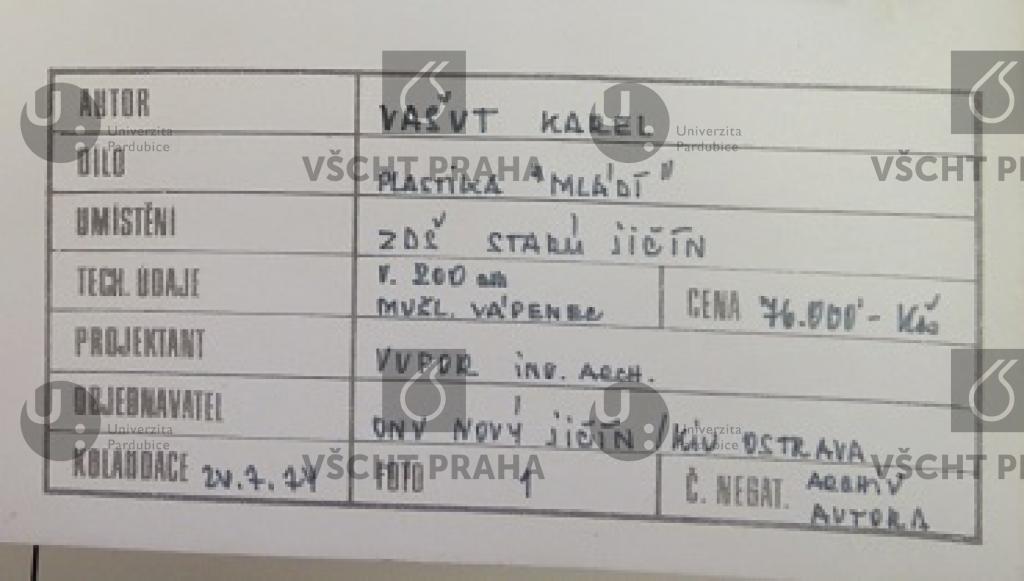 AUTOR VAŠUT KAREL
DÍLO PLASTIKA "MLÁDÍ"
UMÍSTĚNÍ ZDŠ STARÝ JIČÍN
TECH. ÚDAJE V. 200 cm
MUŠL. VÁPENEC CENA 76.000'- Kčs
PROJEKTANT ING. ARCH.
OBJEDNAVATEL ONV NOVÝ JIČÍN / KNV OSTRAVA
KOLAUDACE 24.7.74 FOTO 1 Č. NEGAT. ARCHIV
AUTORA
Univerzita
Pardubice
VŠCHT PRAHA
Univerzita
Pardubice
VŠCHT PR
Univerzita
Pardubice
VŠCHT PRAHA
Univerzita
Pardubice
VŠCHT PR